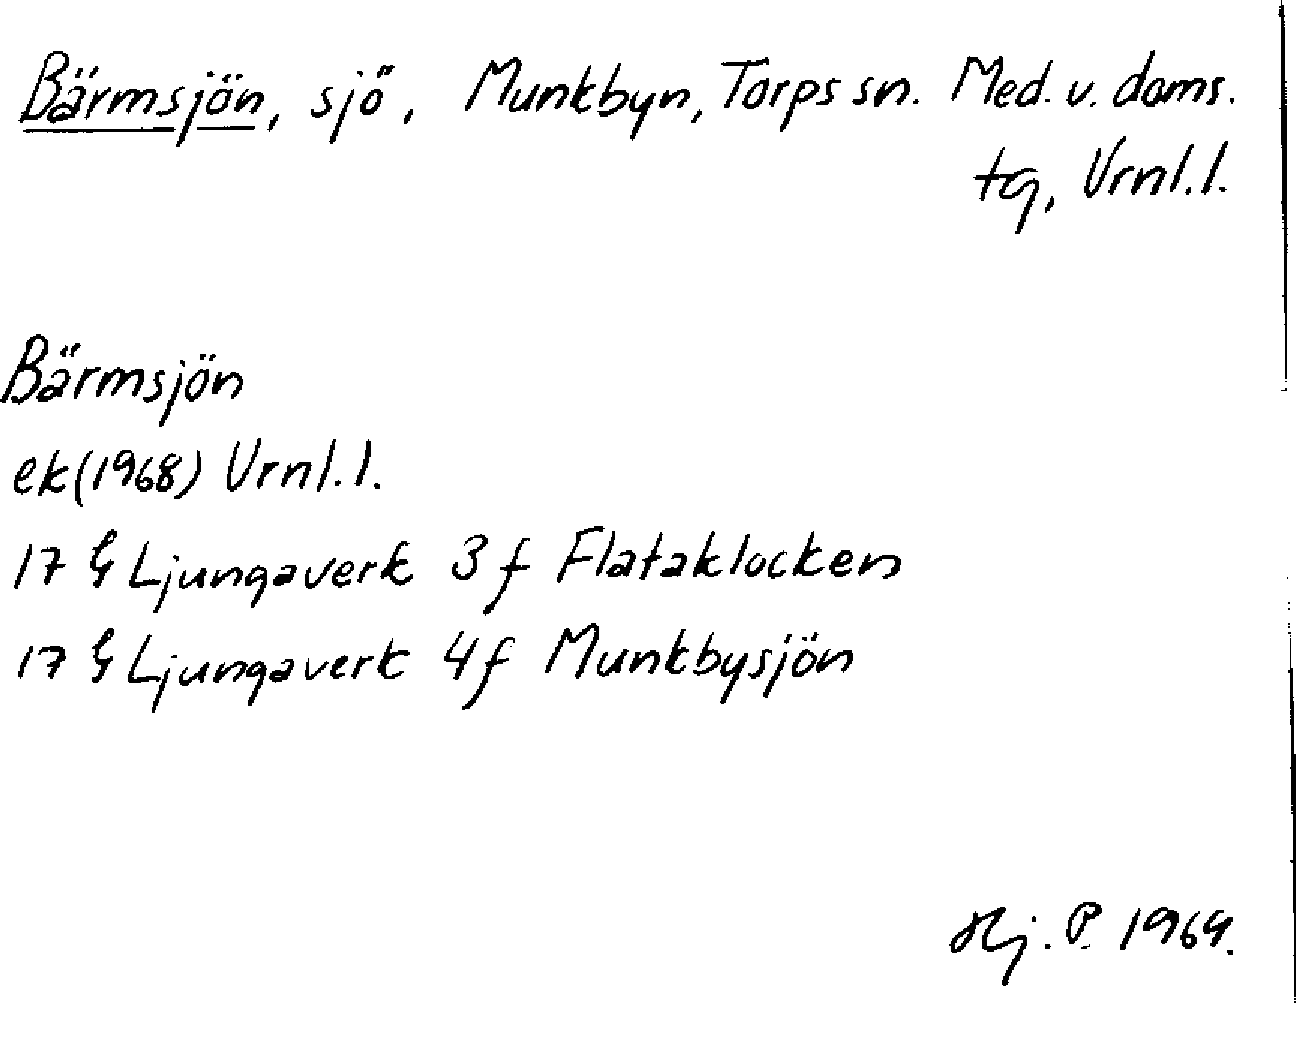 Bärmsjön, sjö, Munkbyn, Torps sn. Med. v. doms.
tg, Vrnl. l.
Bärmsjön
ek (1968) Vrnl. l.
17 G Ljungaverk 3 f Flataklocken
17 G Ljungaverk 4 f Munkbysjön
Hj. P. 1969.